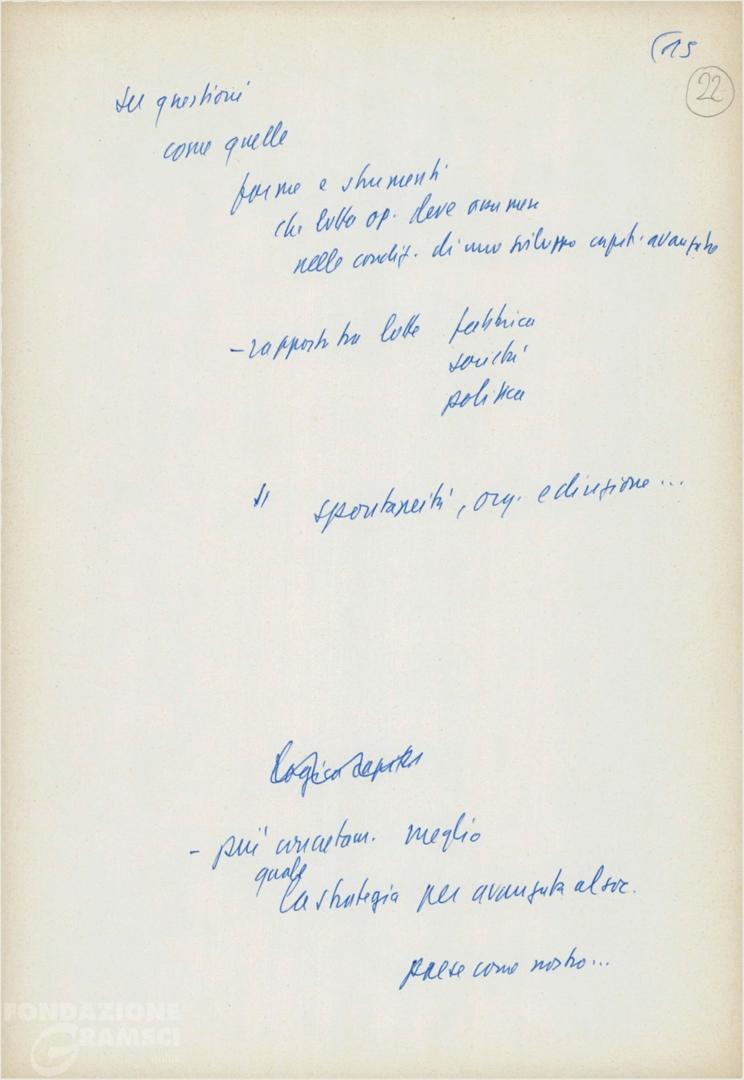 (15
22
su questioni
come quelle
forme e strumenti
che lotta op. deve assumere
nelle condiz. di uno sviluppo capit. avanzato
- rapporto tra lotte fabbrica
società
politica
" spontaneità, org. e direzione...
- più concretam. meglio
quale
la strategia per avanzata al soc.
paese come nostro...
FONDAZIONE
GRAMSCI